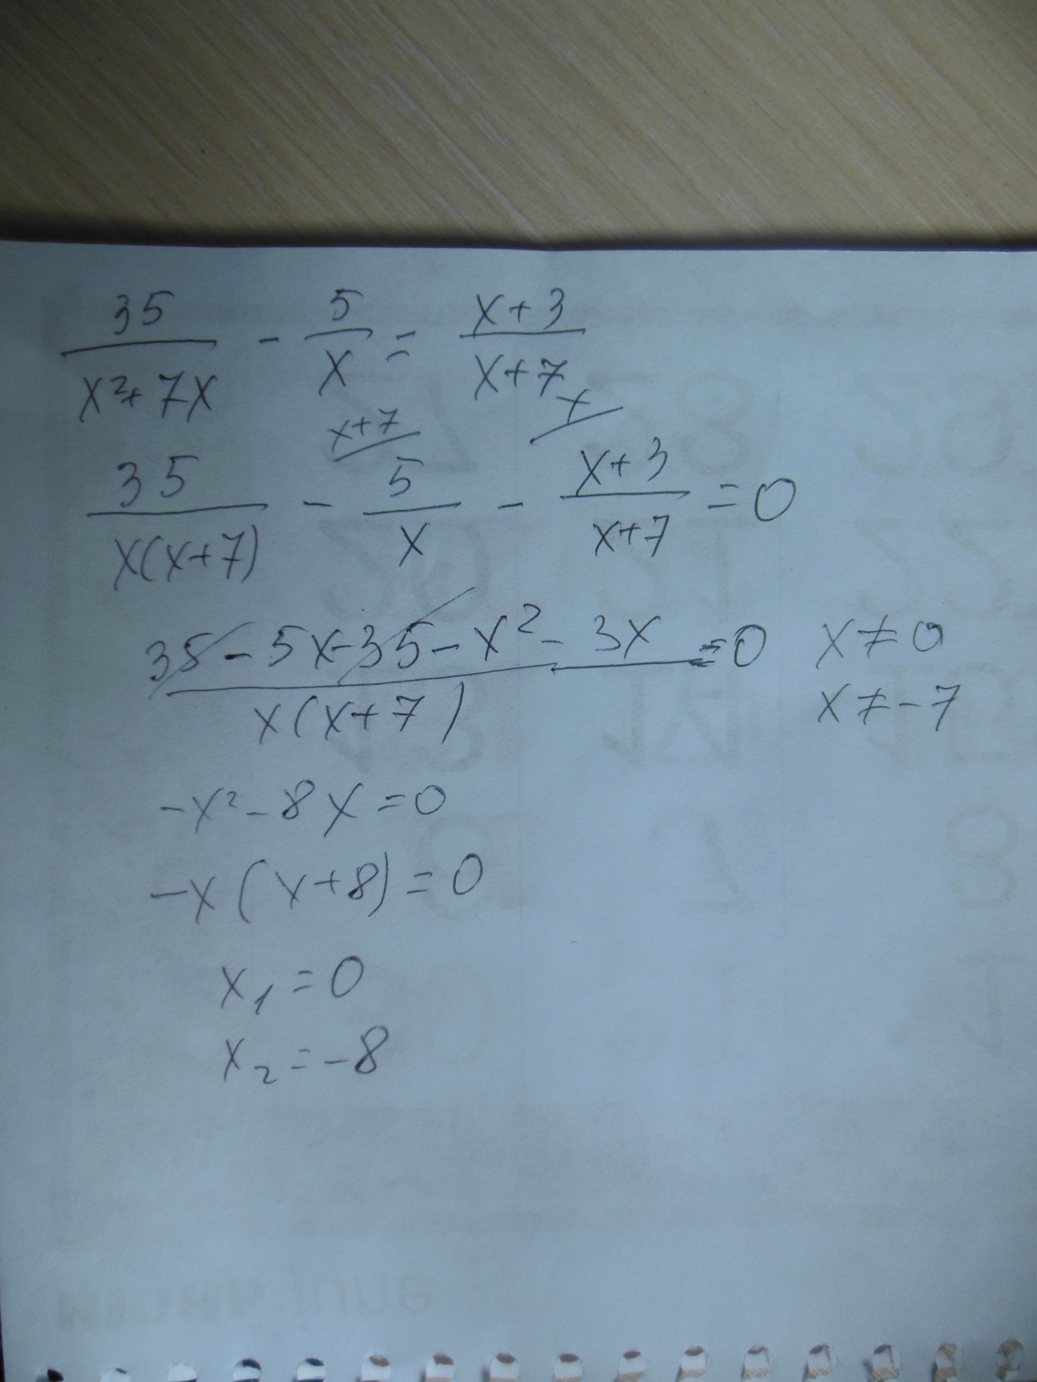 35/(x²+7x) - 5/x = (x+3)/(x+7)
x+7 x
35/(x(x+7)) - 5/x - (x+3)/(x+7) = 0
(35-5x-35-x²-3x)/(x(x+7)) = 0 x≠0
x≠-7
-x²-8x=0
-x(x+8)=0
x₁=0
x₂=-8